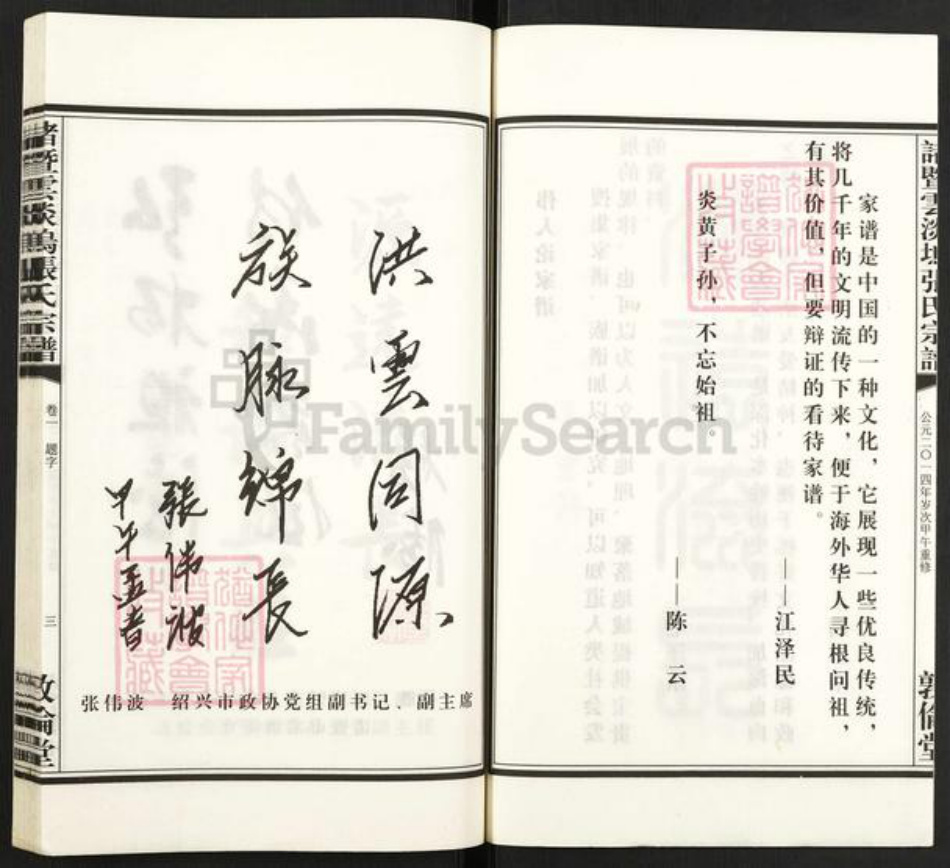 家谱是中国的一种文化，它展现一些优良传统，
将几千年的文明流传下来，便于海外华人寻根问祖，
有其价值，但要辩证的看待家谱。
——江泽民
炎黄子孙，不忘始祖。
——陈云
公元二〇一四年岁次甲午重修
敦倫堂
洪雲同源
族脉綿長
張伟波
甲午孟春
张伟波 绍兴市政协党组副书记、副主席
卷一 题字
三
敦倫堂
FamilySearch